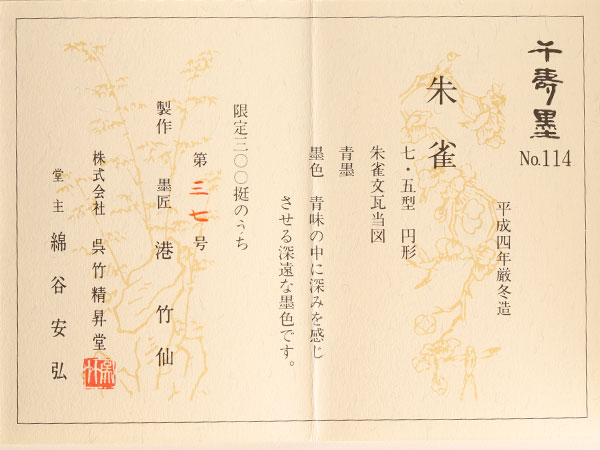 千寿墨
No.114
平成四年厳冬造
朱雀
七・五型 円形
朱雀文瓦当図
青墨
墨色 青味の中に深みを感じ
させる深遠な墨色です。
限定三〇〇挺のうち
第三七号
製作 墨匠 港竹仙
株式会社 呉竹精昇堂
堂主 綿谷安弘